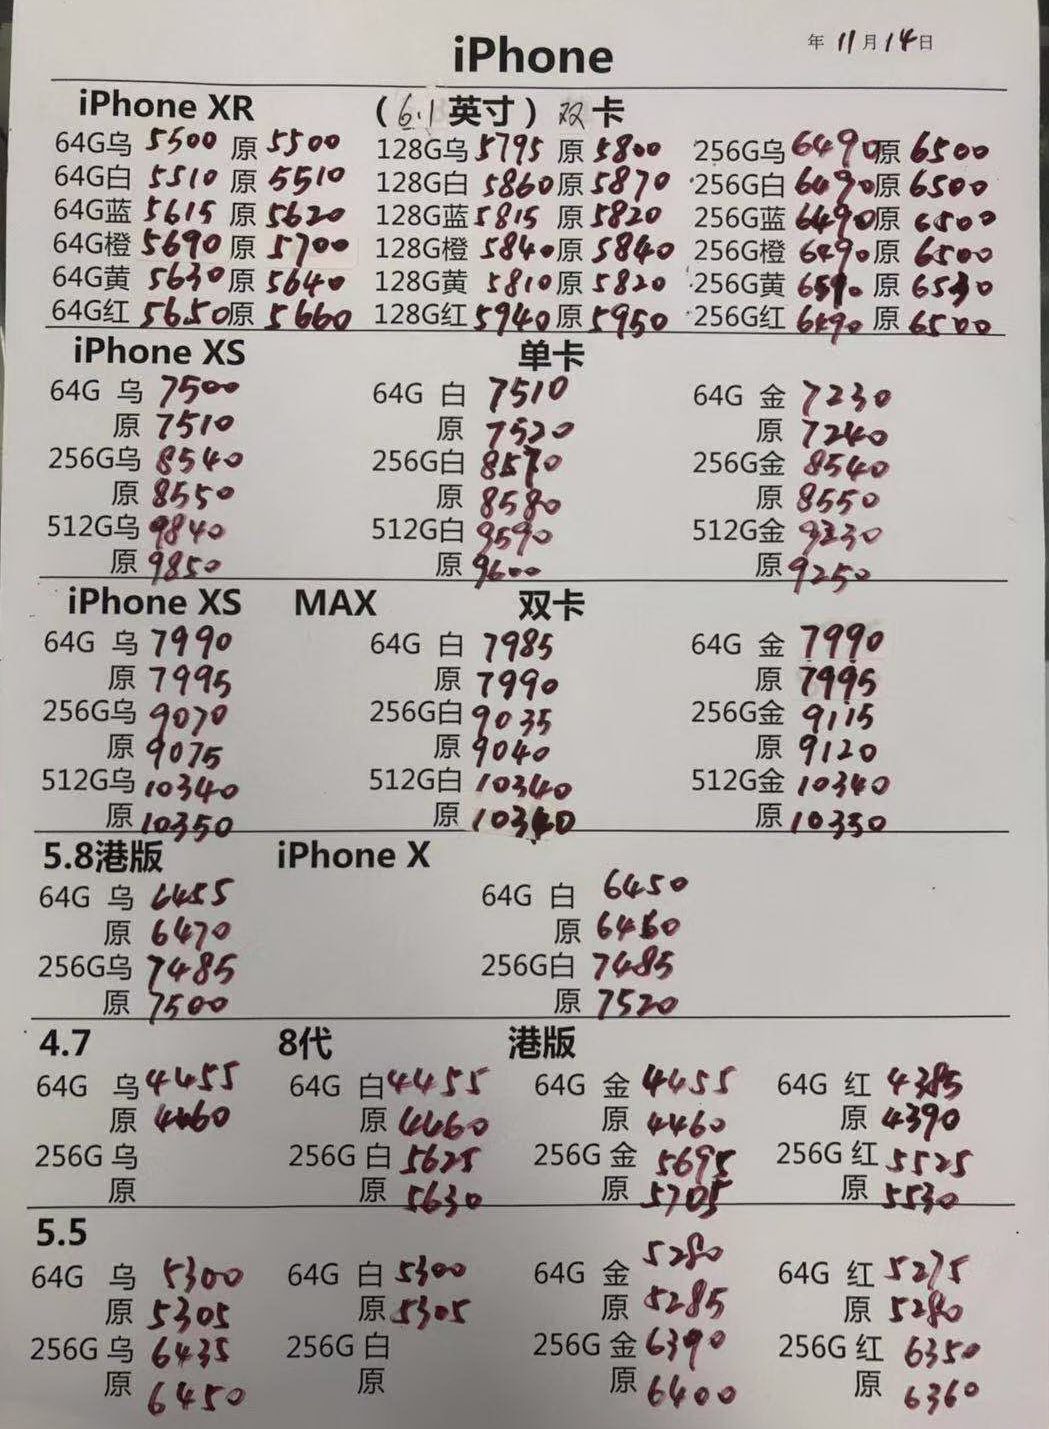 iPhone 年 11 月 14 日
iPhone XR (6.1 英寸) 双卡
64G乌 5500 原 5500 128G乌 5795 原 5800 256G乌 6490 原 6500
64G白 5510 原 5510 128G白 5860 原 5870 256G白 6490 原 6500
64G蓝 5615 原 5620 128G蓝 5815 原 5820 256G蓝 6490 原 6500
64G橙 5690 原 5700 128G橙 5840 原 5840 256G橙 6490 原 6500
64G黄 5630 原 5640 128G黄 5810 原 5820 256G黄 原 6530
64G红 5650 原 5660 128G红 5940 原 5950 256G红 6490 原 6500
iPhone XS 单卡
64G 乌 7500 64G 白 7510 64G 金 7230
原 7510 原 7520 原 7240
256G乌 8540 256G白 8570 256G金 8540
原 8550 原 8580 原 8550
512G乌 9840 512G白 9590 512G金
原 9850 原 9600 原 9250
iPhone XS MAX 双卡
64G 乌 7990 64G 白 7985 64G 金 7990
原 7995 原 7990 原 7995
256G乌 9070 256G白 9035 256G金 9115
原 9075 原 9040 原 9120
512G乌 10340 512G白 10340 512G金 10340
原 10350 原 原 10350
5.8港版 iPhone X
64G 乌 6455 64G 白 6450
原 6470 原 6460
256G乌 7485 256G白 7485
原 7500 原 7520
4.7 8代 港版
64G 乌 4455 64G 白 4455 64G 金 4455 64G 红 4385
原 4460 原 4460 原 4460 原 4390
256G 乌 256G 白 5625 256G 金 5695 256G 红 5525
原 原 5630 原 5705 原 5530
5.5
64G 乌 5300 64G 白 5300 64G 金 5280 64G 红 5275
原 5305 原 5305 原 5285 原 5280
256G 乌 6435 256G 白 256G 金 6390 256G 红 6350
原 6450 原 原 6400 原 6360